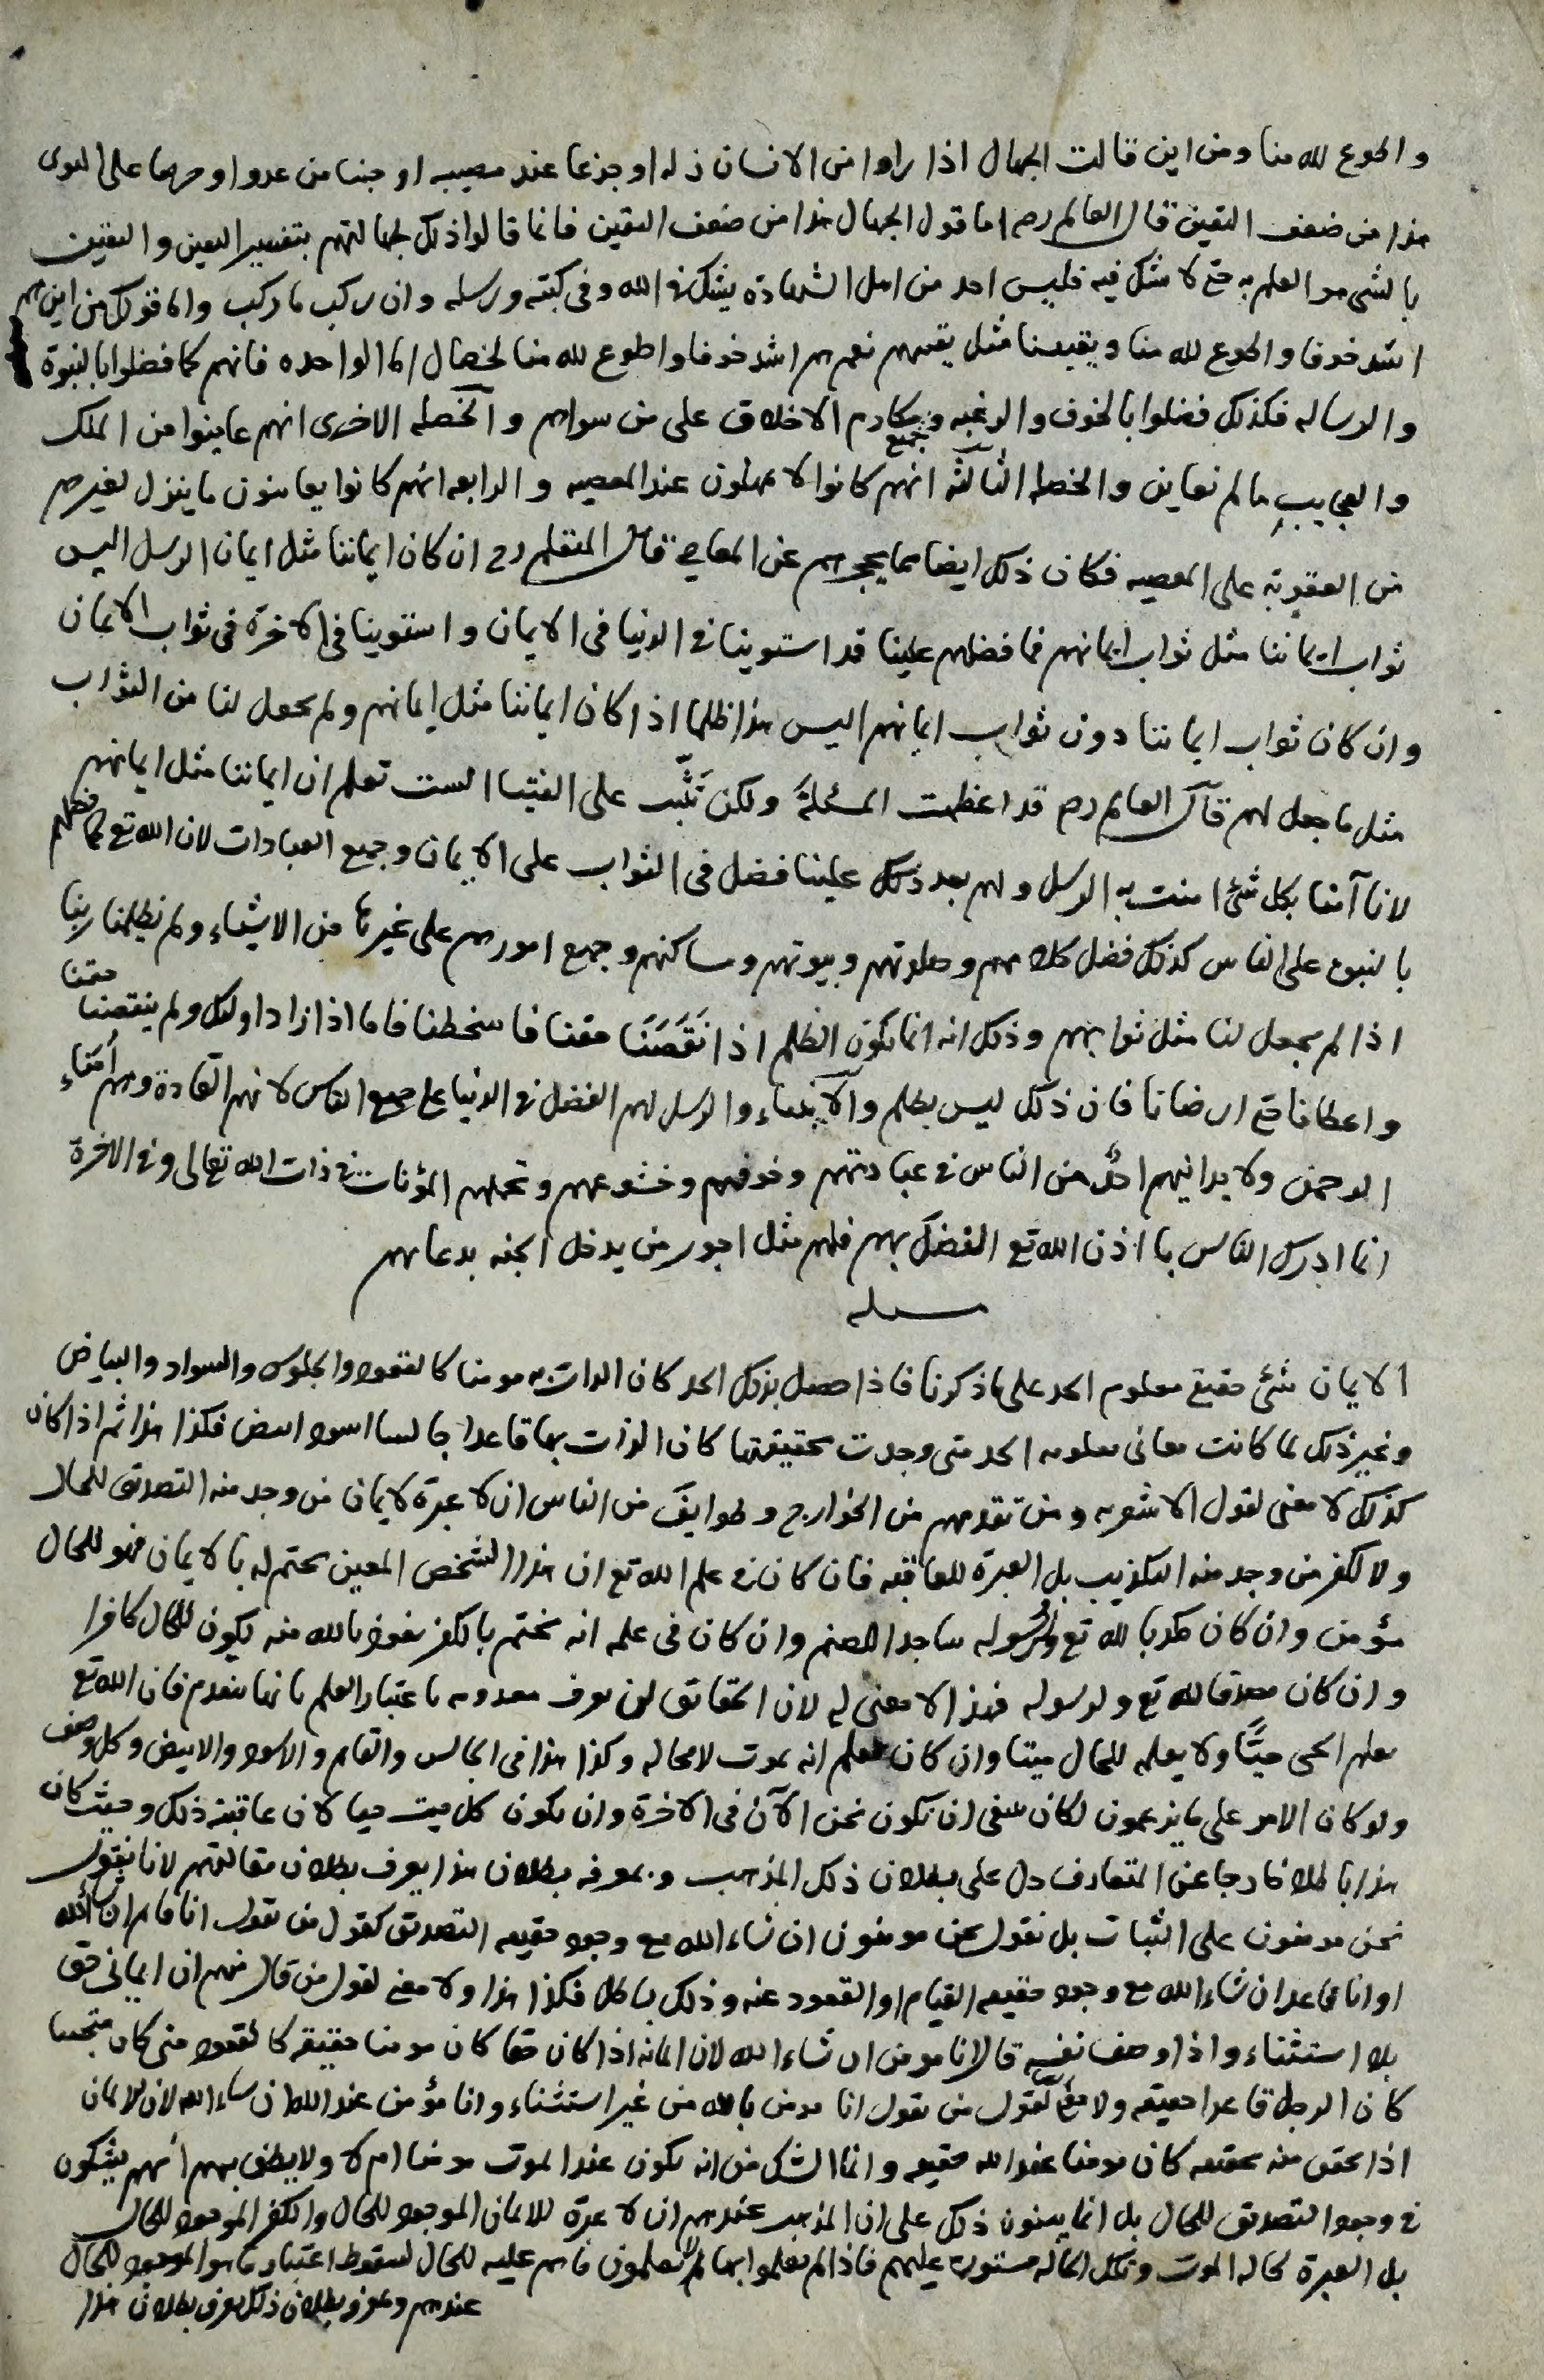 واطوع لله منا ومن اين قالت الجهال اذا راوا من الانسان ذله او جزعا عند مصيبه او جبنا من عدو او حرصا على الدنيا
هذا من ضعف اليقين قال العالم رحم اما قول الجهال هذا من ضعف اليقين فانما قالوا ذلك لجهالتهم بتفسير اليقين واليقين
بالشى هو العلم به حتى لا يشك فيه فليس احد من اهل الشهادة يشك في الله وفى كتبه ورسله وان ركب ما ركب واما قولك من اين هم
اشد خوفا واطوع لله منا ويقيننا مثل يقينهم نعم هم اشد خوفا واطوع لله منا لخصال اما الواحده فانهم كما فضلوا بالنبوة
والرساله فكذلك فضلوا بالخوف والرغبه وجميع مكارم الاخلاق على من سواهم والخصله الاخرى انهم عاينوا من الملك
والعجايب ما لم نعاين والخصله الثالثة انهم كانوا لا يمهلون عند المعصيه والرابعه انهم كانوا يعاينون ما ينزل لغيرهم
من العقوبة على المعصيه فكان ذلك ايضا مما يحجزهم عن المعاصي قال المتعلم رح ان كان ايماننا مثل ايمان الرسل اليس
ثواب ايماننا مثل ثواب ايمانهم فما فضلهم علينا قد استوينا في الدنيا فى الايمان واستوينا فى الاخرة فى ثواب الايمان
وان كان ثواب ايماننا دون ثواب ايمانهم اليس هذا ظلما اذا كان ايماننا مثل ايمانهم ولم يجعل لنا من الثواب
مثل ما جعل لهم قال العالم رحم قد اعظمت المسئلة ولكن تثبّت على الفتيا الست تعلم ان ايماننا مثل ايمانهم
لانا آمنا بكل شئ امنت به الرسل ولهم بعد ذلك علينا فضل فى الثواب على الايمان وجميع العبادات لان الله تع كما فضلهم
بالنبوة على الناس كذلك فضل كلامهم وصلوتهم وبيوتهم ومساكنهم وجميع امورهم على غيرها من الاشياء ولم يظلمنا ربنا
اذا لم يجعل لنا مثل ثوابهم وذلك انه انما يكون الظلم اذا نَقَصَنَا حقنا فاسخطنا فاما اذا زاد اولئك ولم ينقصنا حقنا
واعطانا حتى ارضانا فان ذلك ليس بظلم والانبياء والرسل لهم الفضل في الدنيا على جميع الناس لانهم القادة وهم أمناء
الرحمن ولا يدانيهم احدٌ من الناس في عبادتهم وخوفهم وخشوعهم وتحملهم المؤنات في ذات الله تعالى وفي الاخرة
انما ادرك الناس باذن الله تع الفضل بهم فلهم مثل اجور من يدخل الجنه بدعائهم
مسله
الايمان شئ حقيقى معلوم الحد على ما ذكرنا فاذا حصل بذلك الحد كان الذات به مومنا كالقعود والجلوس والسواد والبياض
وغير ذلك لما كانت معانى معلومه الحد متى وجدت بحقيقتها كان الذات بها قاعدا جالسا اسود ابيض فكذا هذا ثم اذا كان
كذلك لا معنى لقول الاشعريه ومن تقدمهم من الخوارج وطوايف من الناس ان لا عبرة لايمان من وجد منه التصديق للحال
ولا لكفر من وجد منه التكذيب بل العبرة للعاقبه فان كان في علم الله تع ان هذا الشخص المعين يختم له بالايمان فهو للحال
مؤمن وان كان مكذبا لله تع ولرسوله ساجدا للصنم وان كان فى علمه انه يختم بالكفر نعوذ بالله منه يكون للحال كافرا
وان كان مصدقا لله تع ولرسوله فهذا لا معنى له لان الحقائق لن تعرف معدومه باعتبار العلم بانها تنعدم فان الله تع
يعلم الحى حيّا ولا يعلمه للحال ميتا وان كان يعلم انه يموت لا محاله وكذا هذا فى الجالس والقايم والاسود والابيض وكل وصف
ولو كان الامر على ما يزعمون لكان ينبغى ان نكون نحن الآن فى الاخرة وان يكون كل ميت حيا لان عاقبته ذلك وحيث كان
هذا باطلا خارجا عن المتعارف دل على بطلان ذلك المذهب وبمعرفه بطلان هذا يعرف بطلان مقالتهم لانا نقول
نحن مومنون على الثبات بل نقول نحن مومنون ان شاء الله مع وجود حقيقه التصديق كقول من يقول انا قايم ان شاء الله
او انا قاعد ان شاء الله مع وجود حقيقه القيام او القعود عنه وذلك باطل فكذا هذا ولا معنى لقول من قال منهم ان ايمانى حق
بلا استثناء واذا وصف نفسه قال انا مومن ان شاء الله لان ايمانه اذا كان حقا كان مومنا حقيقه كالقعود متى كان متحققا
كان الرجل قاعدا حقيقه ولا معنى لقول من يقول انا مومن بالله من غير استثناء وانا مؤمن عند الله ان شاء الله لان الايمان
اذا تحقق منه حقيقه كان مومنا عند الله حقيقه وانما الشك من انه يكون عند الموت مومنا ام لا ولا يظن بهم انهم يشكون
في وجود التصديق للحال بل انما يبنون ذلك على ان المذهب عندهم ان لا عبرة للايمان الموجود للحال والكفر الموجود للحال
بل العبرة لحاله الموت وتلك الحاله مستورة عليهم فاذا لم يعلموا بها لا يعلمون ما هم عليه للحال لسقوط اعتبار ما هو الموجود للحال
عندهم وبمعرفه بطلان ذلك يعرف بطلان هذا